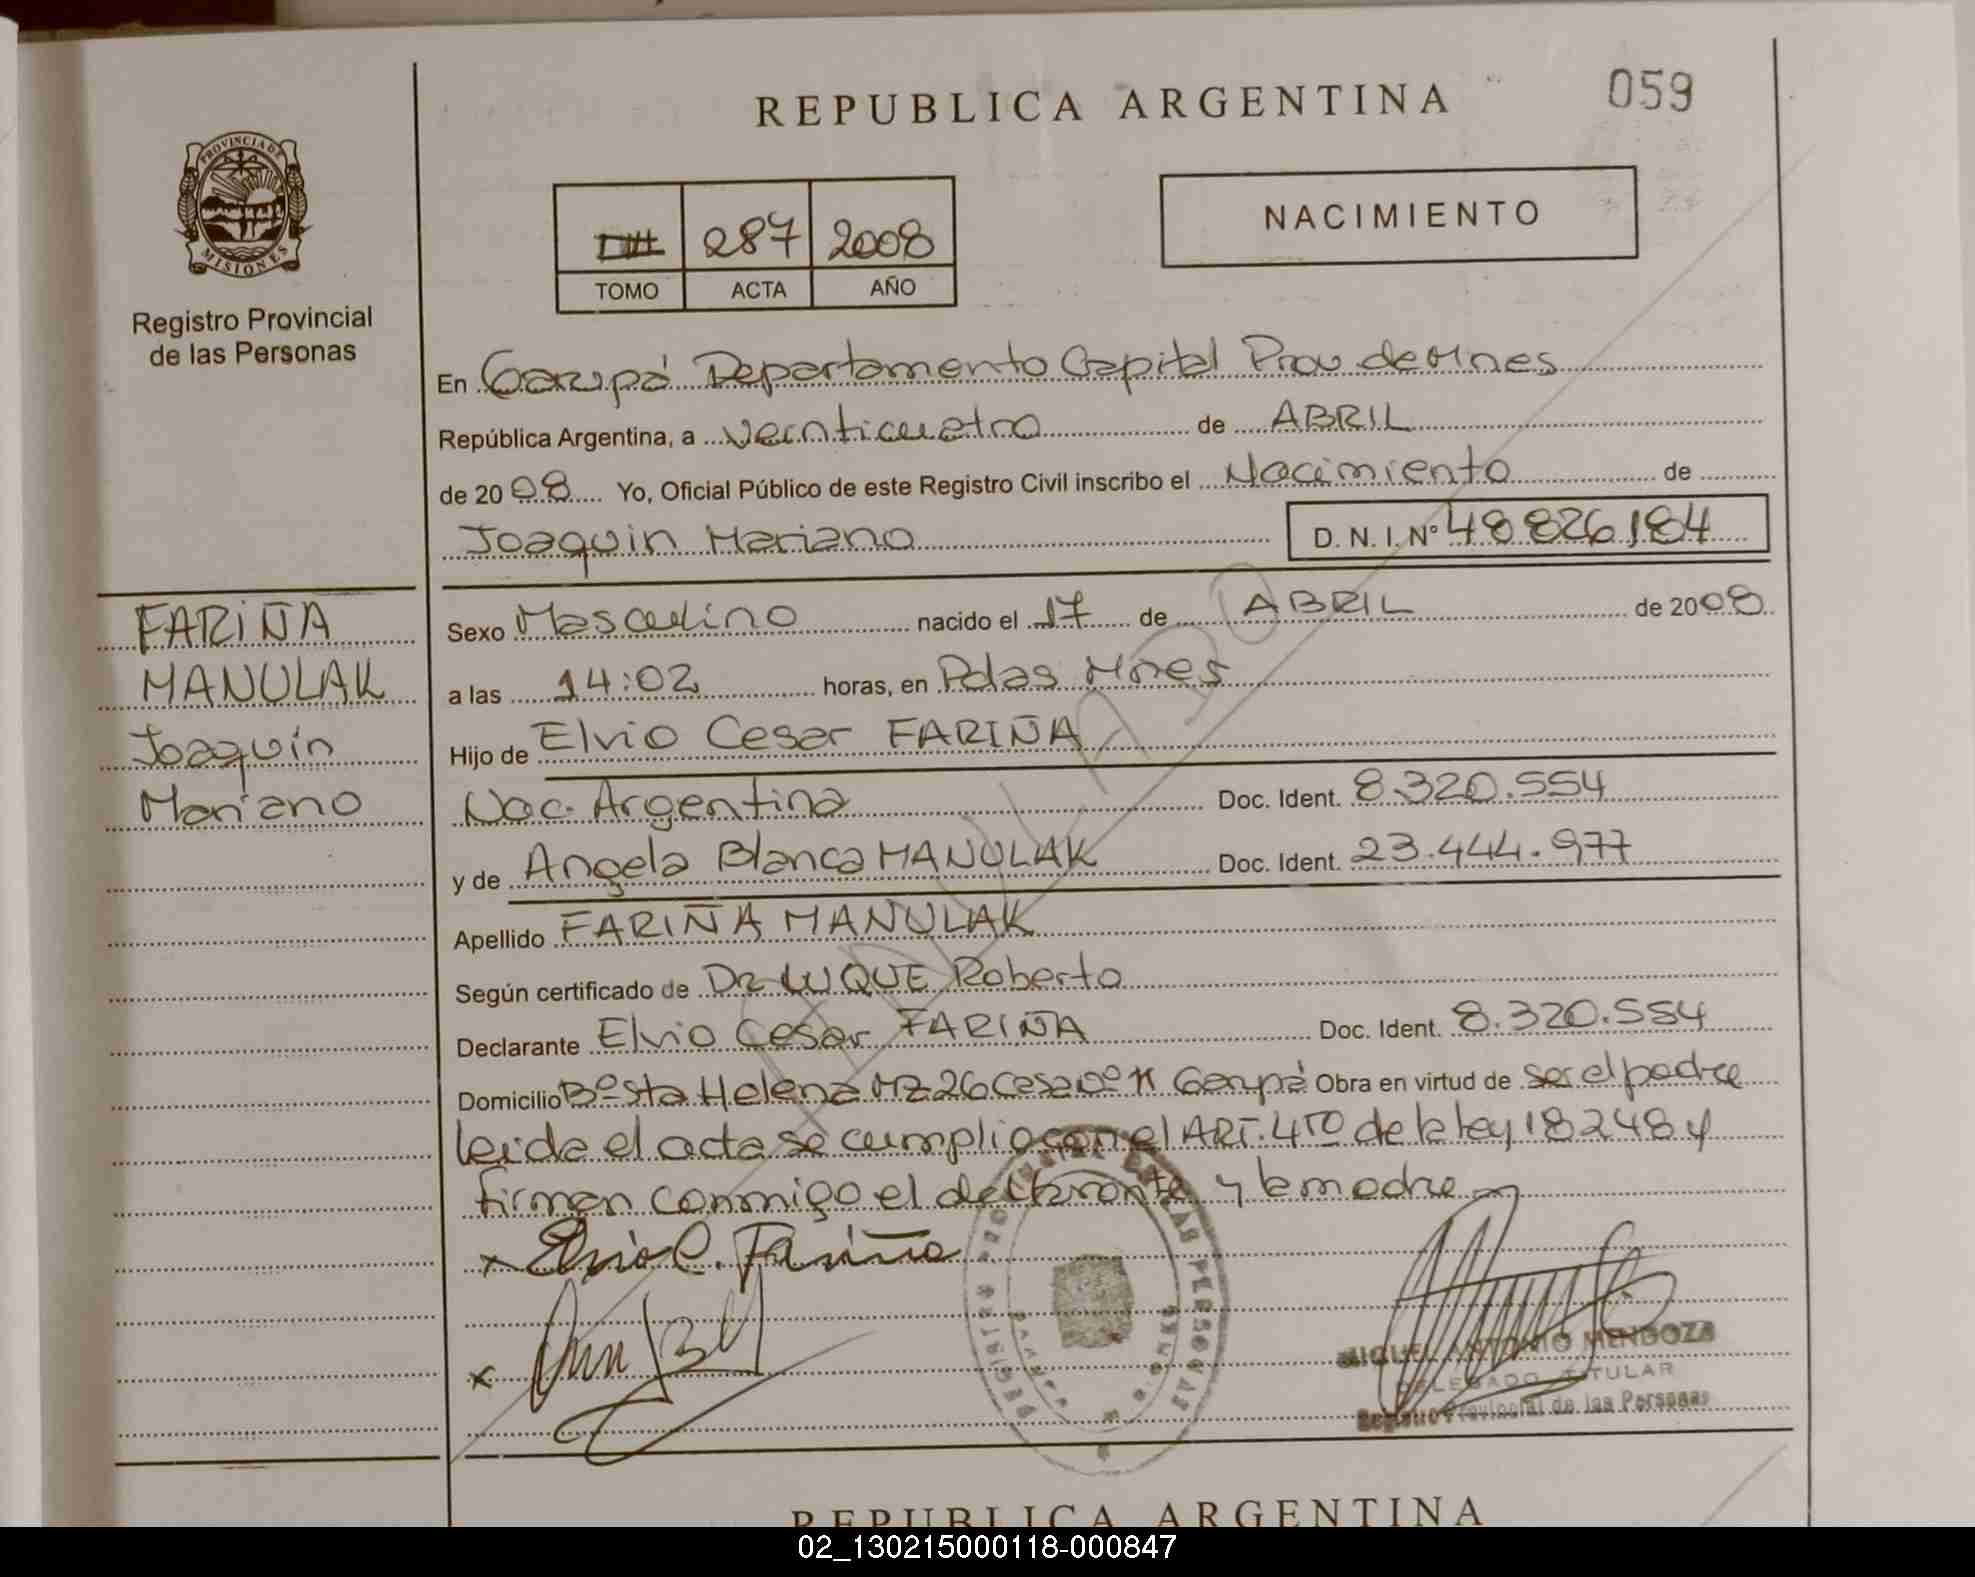 REPUBLICA ARGENTINA
059
PROVINCIA DE
MISIONES
Registro Provincial
de las Personas
287 2008
TOMO ACTA AÑO
NACIMIENTO
En Garupá Departamento Capital Prov de Mnes
República Argentina, a veinticuatro de ABRIL
de 2008 Yo, Oficial Público de este Registro Civil inscribo el Nacimiento de
Joaquin Mariano D.N.I. Nº 48826184
FARIÑA
MANULAK
Joaquín
Mariano
Sexo Masculino nacido el 17 de ABRIL de 2008
a las 14:02 horas, en Pdas Mnes
Hijo de Elvio Cesar FARIÑA
Nac. Argentina Doc. Ident. 8.320.554
y de Angela Blanca MANULAK Doc. Ident. 23.444.977
Apellido FARIÑA MANULAK
Según certificado de Dr LUQUE Roberto
Declarante Elvio Cesar FARIÑA Doc. Ident. 8.320.554
Domicilio Bº Sta Helena Mz 26 Casa Nº Garupá Obra en virtud de ser el padre
leida el acta se cumplio con el ART. 4TO de la ley 18248 y
firman conmigo el declarante y la madre
x Elvio C. Fariña
x
REGISTRO PROVINCIAL DE LAS PERSONAS
MIGUEL ANTONIO MENDOZA
DELEGADO TITULAR
Registro Provincial de las Personas
REPUBLICA ARGENTINA
02_130215000118-000847